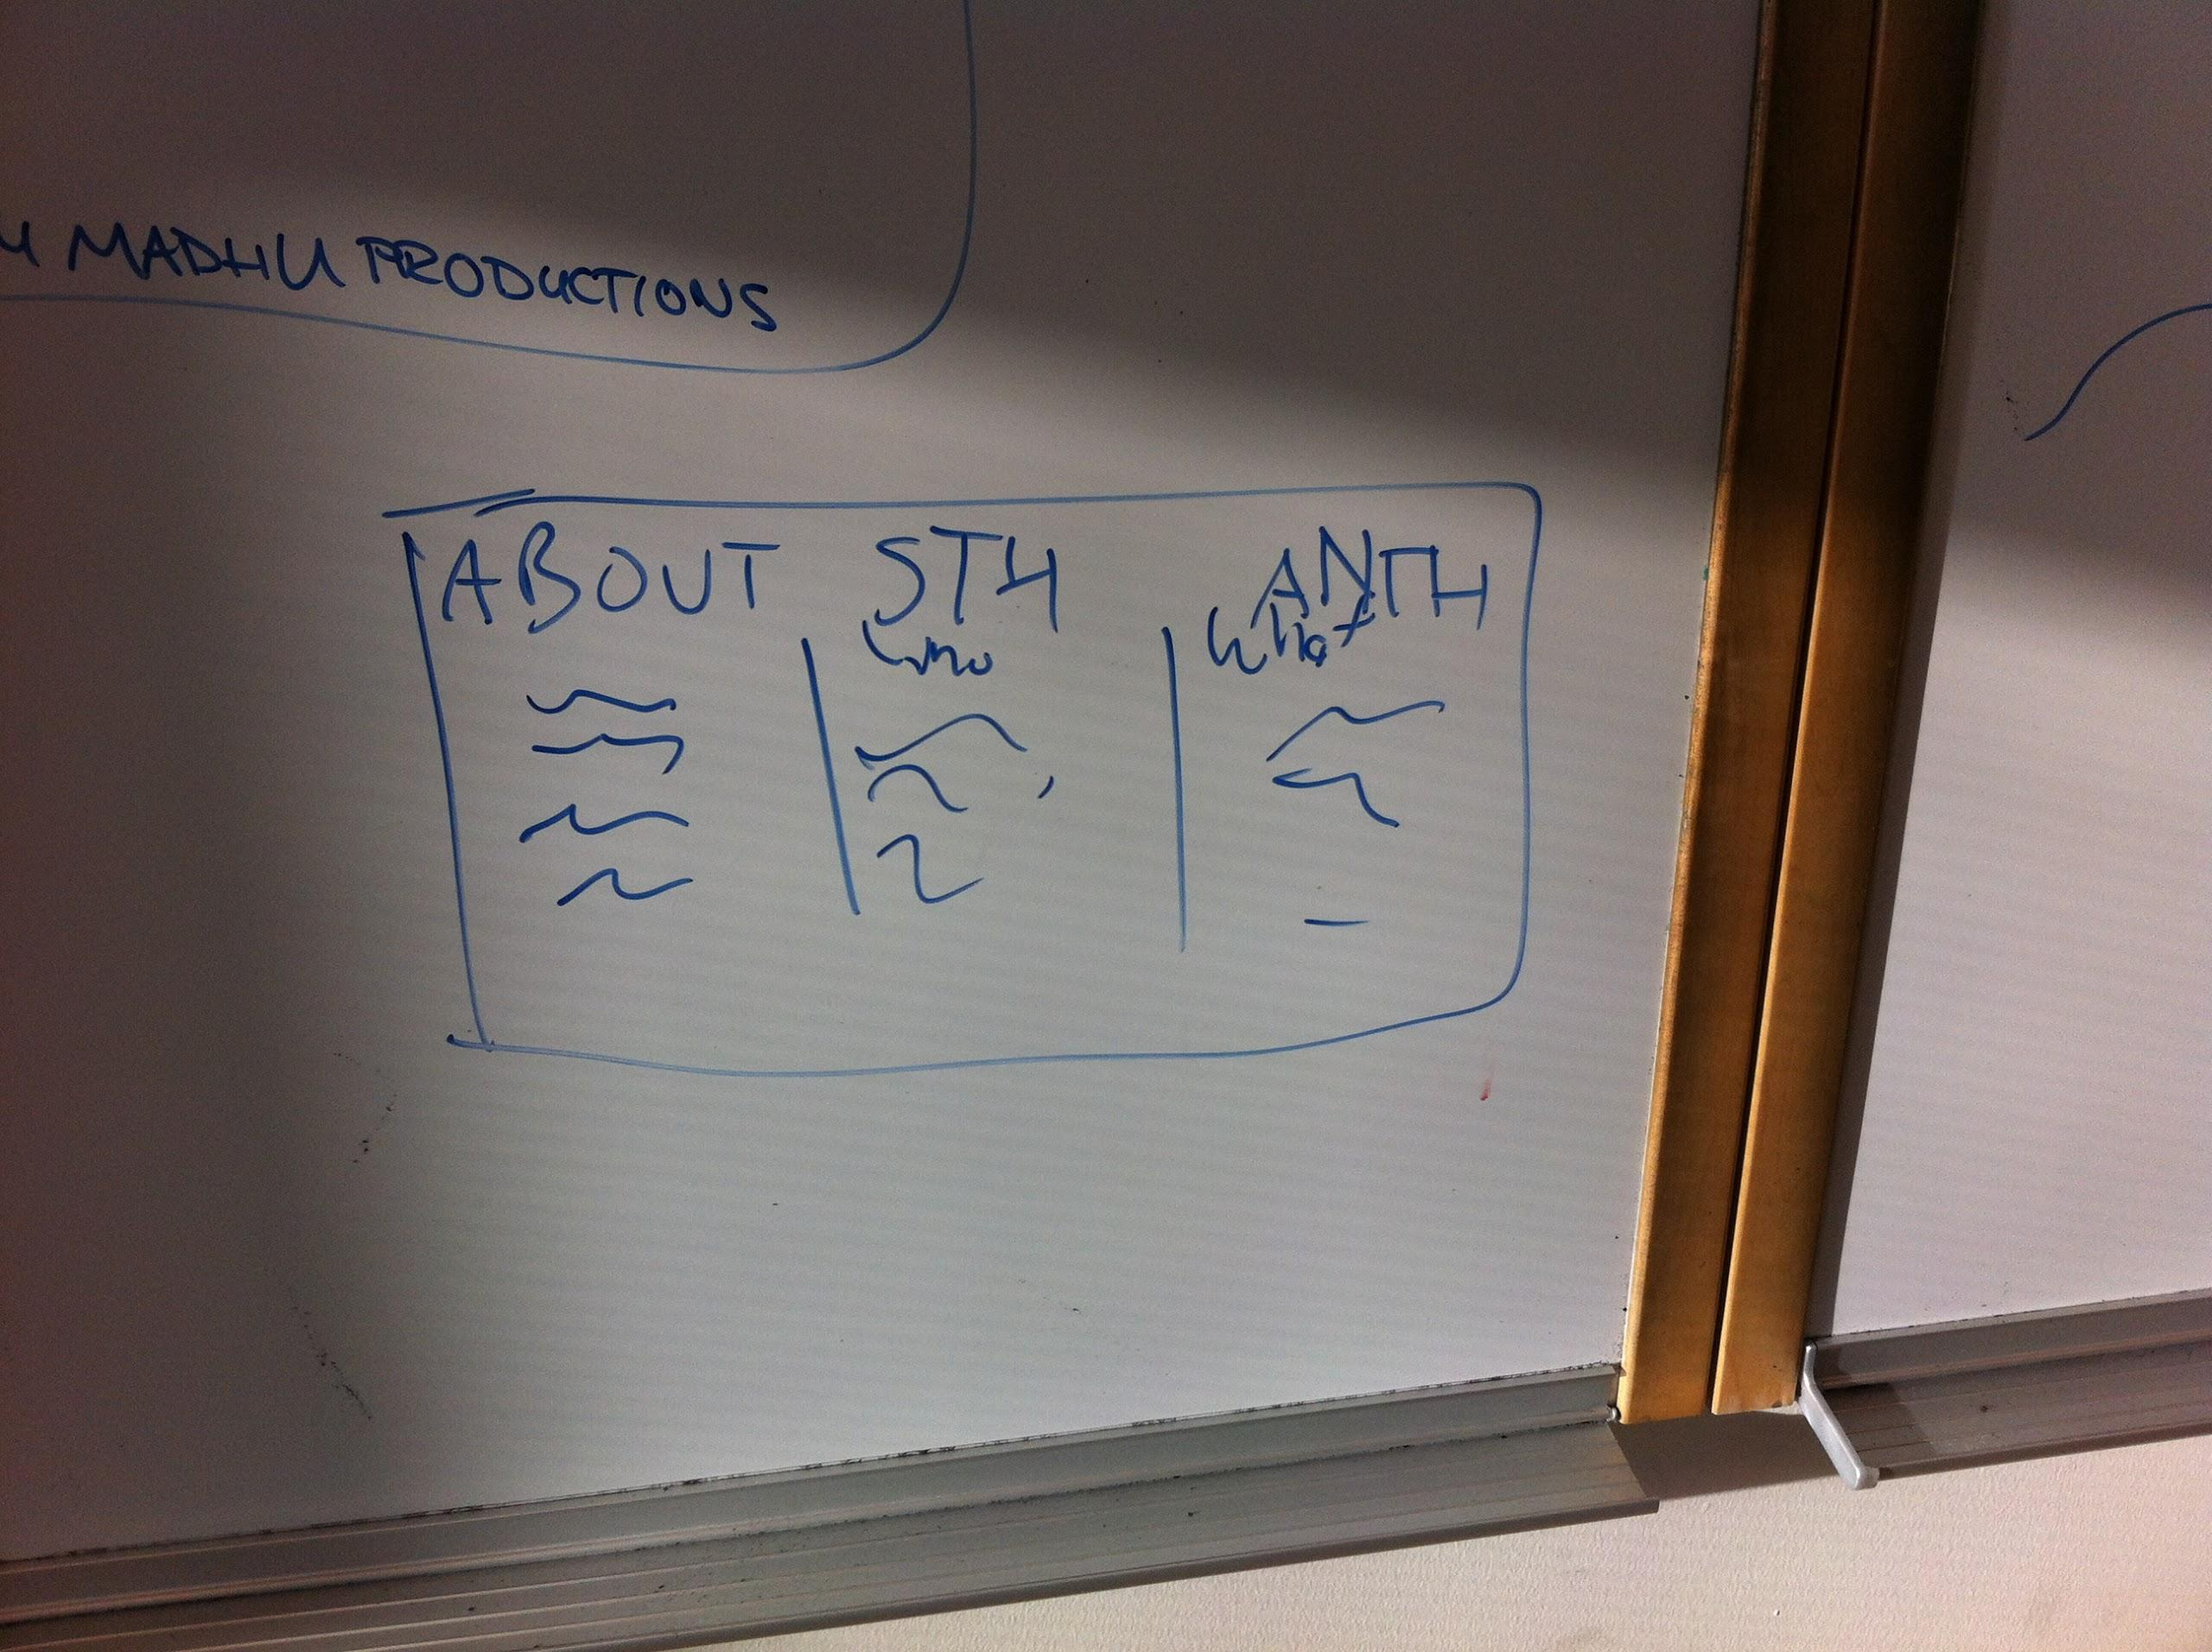 MADHU PRODUCTIONS
ABOUT STH ANTH
what